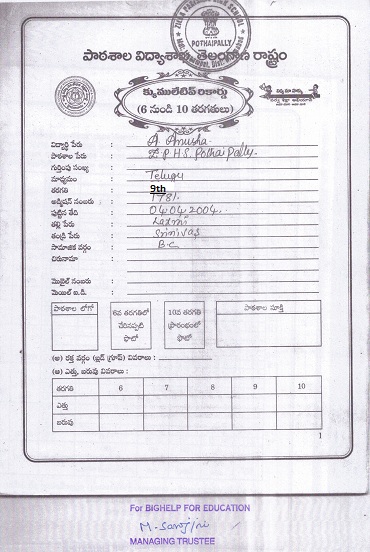 ZILLA PARISHAD HIGH SCHOOL
POTHAIPALLY
పాఠశాల విద్యాశాఖ, తెలంగాణ రాష్ట్రం
క్యుములేటివ్ రికార్డు
(6 నుండి 10 తరగతులు)
విద్యార్థి పేరు : A. Anusha.
పాఠశాల పేరు : Z.P.H.S. Pothaipally.
గుర్తింపు సంఖ్య :
మాధ్యమం : Telugu
తరగతి : 9th
అడ్మిషన్ నంబరు : 1781.
పుట్టిన తేది : 04.04.2004.
తల్లి పేరు : Laxmi
తండ్రి పేరు : Srinivas
సామాజిక వర్గం : B.C
చిరునామా :
మొబైల్ నంబరు :
మెయిల్ ఐ.డి. :
పాఠశాల లోగో
6వ తరగతిలో చేరినప్పటి ఫొటో
10వ తరగతి ప్రారంభంలో ఫొటో
పాఠశాల సూక్తి
(అ) రక్త వర్గం (బ్లడ్ గ్రూప్) వివరాలు :
(ఆ) ఎత్తు, బరువు వివరాలు :
తరగతి 6 7 8 9 10
ఎత్తు
బరువు
1
For BIGHELP FOR EDUCATION
M. Saroj/ni
MANAGING TRUSTEE